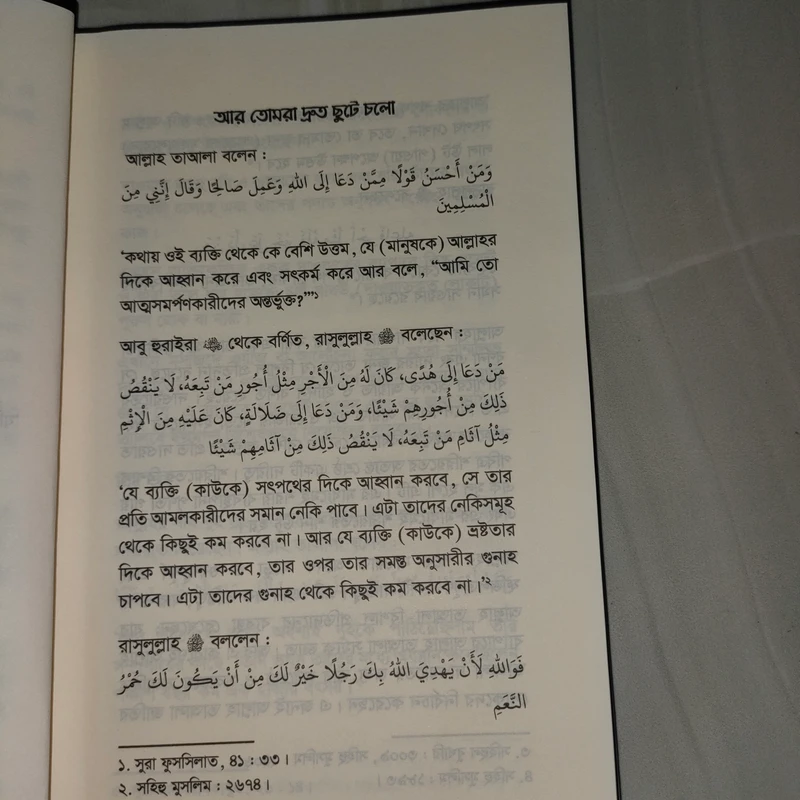 আর তোমরা দ্রুত ছুটে চলো
আল্লাহ তাআলা বলেন :
وَمَنْ أَحْسَنُ قَوْلًا مِمَّنْ دَعَا إِلَى اللهِ وَعَمِلَ صَالِحًا وَقَالَ إِنَّنِي مِنَ
الْمُسْلِمِينَ
‘কথায় ওই ব্যক্তি থেকে কে বেশি উত্তম, যে (মানুষকে) আল্লাহর
দিকে আহ্বান করে এবং সৎকর্ম করে আর বলে, “আমি তো
আত্মসমর্পণকারীদের অন্তর্ভুক্ত?”’১
আবু হুরাইরা ﵁ থেকে বর্ণিত, রাসুলুল্লাহ ﷺ বলেছেন :
مَنْ دَعَا إِلَى هُدًى، كَانَ لَهُ مِنَ الْأَجْرِ مِثْلُ أُجُورِ مَنْ تَبِعَهُ، لَا يَنْقُصُ
ذَلِكَ مِنْ أُجُورِهِمْ شَيْئًا، وَمَنْ دَعَا إِلَى ضَلَالَةٍ، كَانَ عَلَيْهِ مِنَ الْإِثْمِ
مِثْلُ آثَامِ مَنْ تَبِعَهُ، لَا يَنْقُصُ ذَلِكَ مِنْ آثَامِهِمْ شَيْئًا
‘যে ব্যক্তি (কাউকে) সৎপথের দিকে আহ্বান করবে, সে তার
প্রতি আমলকারীদের সমান নেকি পাবে। এটা তাদের নেকিসমূহ
থেকে কিছুই কম করবে না। আর যে ব্যক্তি (কাউকে) ভ্রষ্টতার
দিকে আহ্বান করবে, তার ওপর তার সমস্ত অনুসারীর গুনাহ
চাপবে। এটা তাদের গুনাহ থেকে কিছুই কম করবে না।’২
রাসুলুল্লাহ ﷺ বললেন :
فَوَاللهِ لَأَنْ يَهْدِيَ اللهُ بِكَ رَجُلًا خَيْرٌ لَكَ مِنْ أَنْ يَكُونَ لَكَ حُمْرُ
النَّعَمِ
১. সুরা ফুসসিলাত, ৪১ : ৩৩।
২. সহিহু মুসলিম : ২৬৭৪।